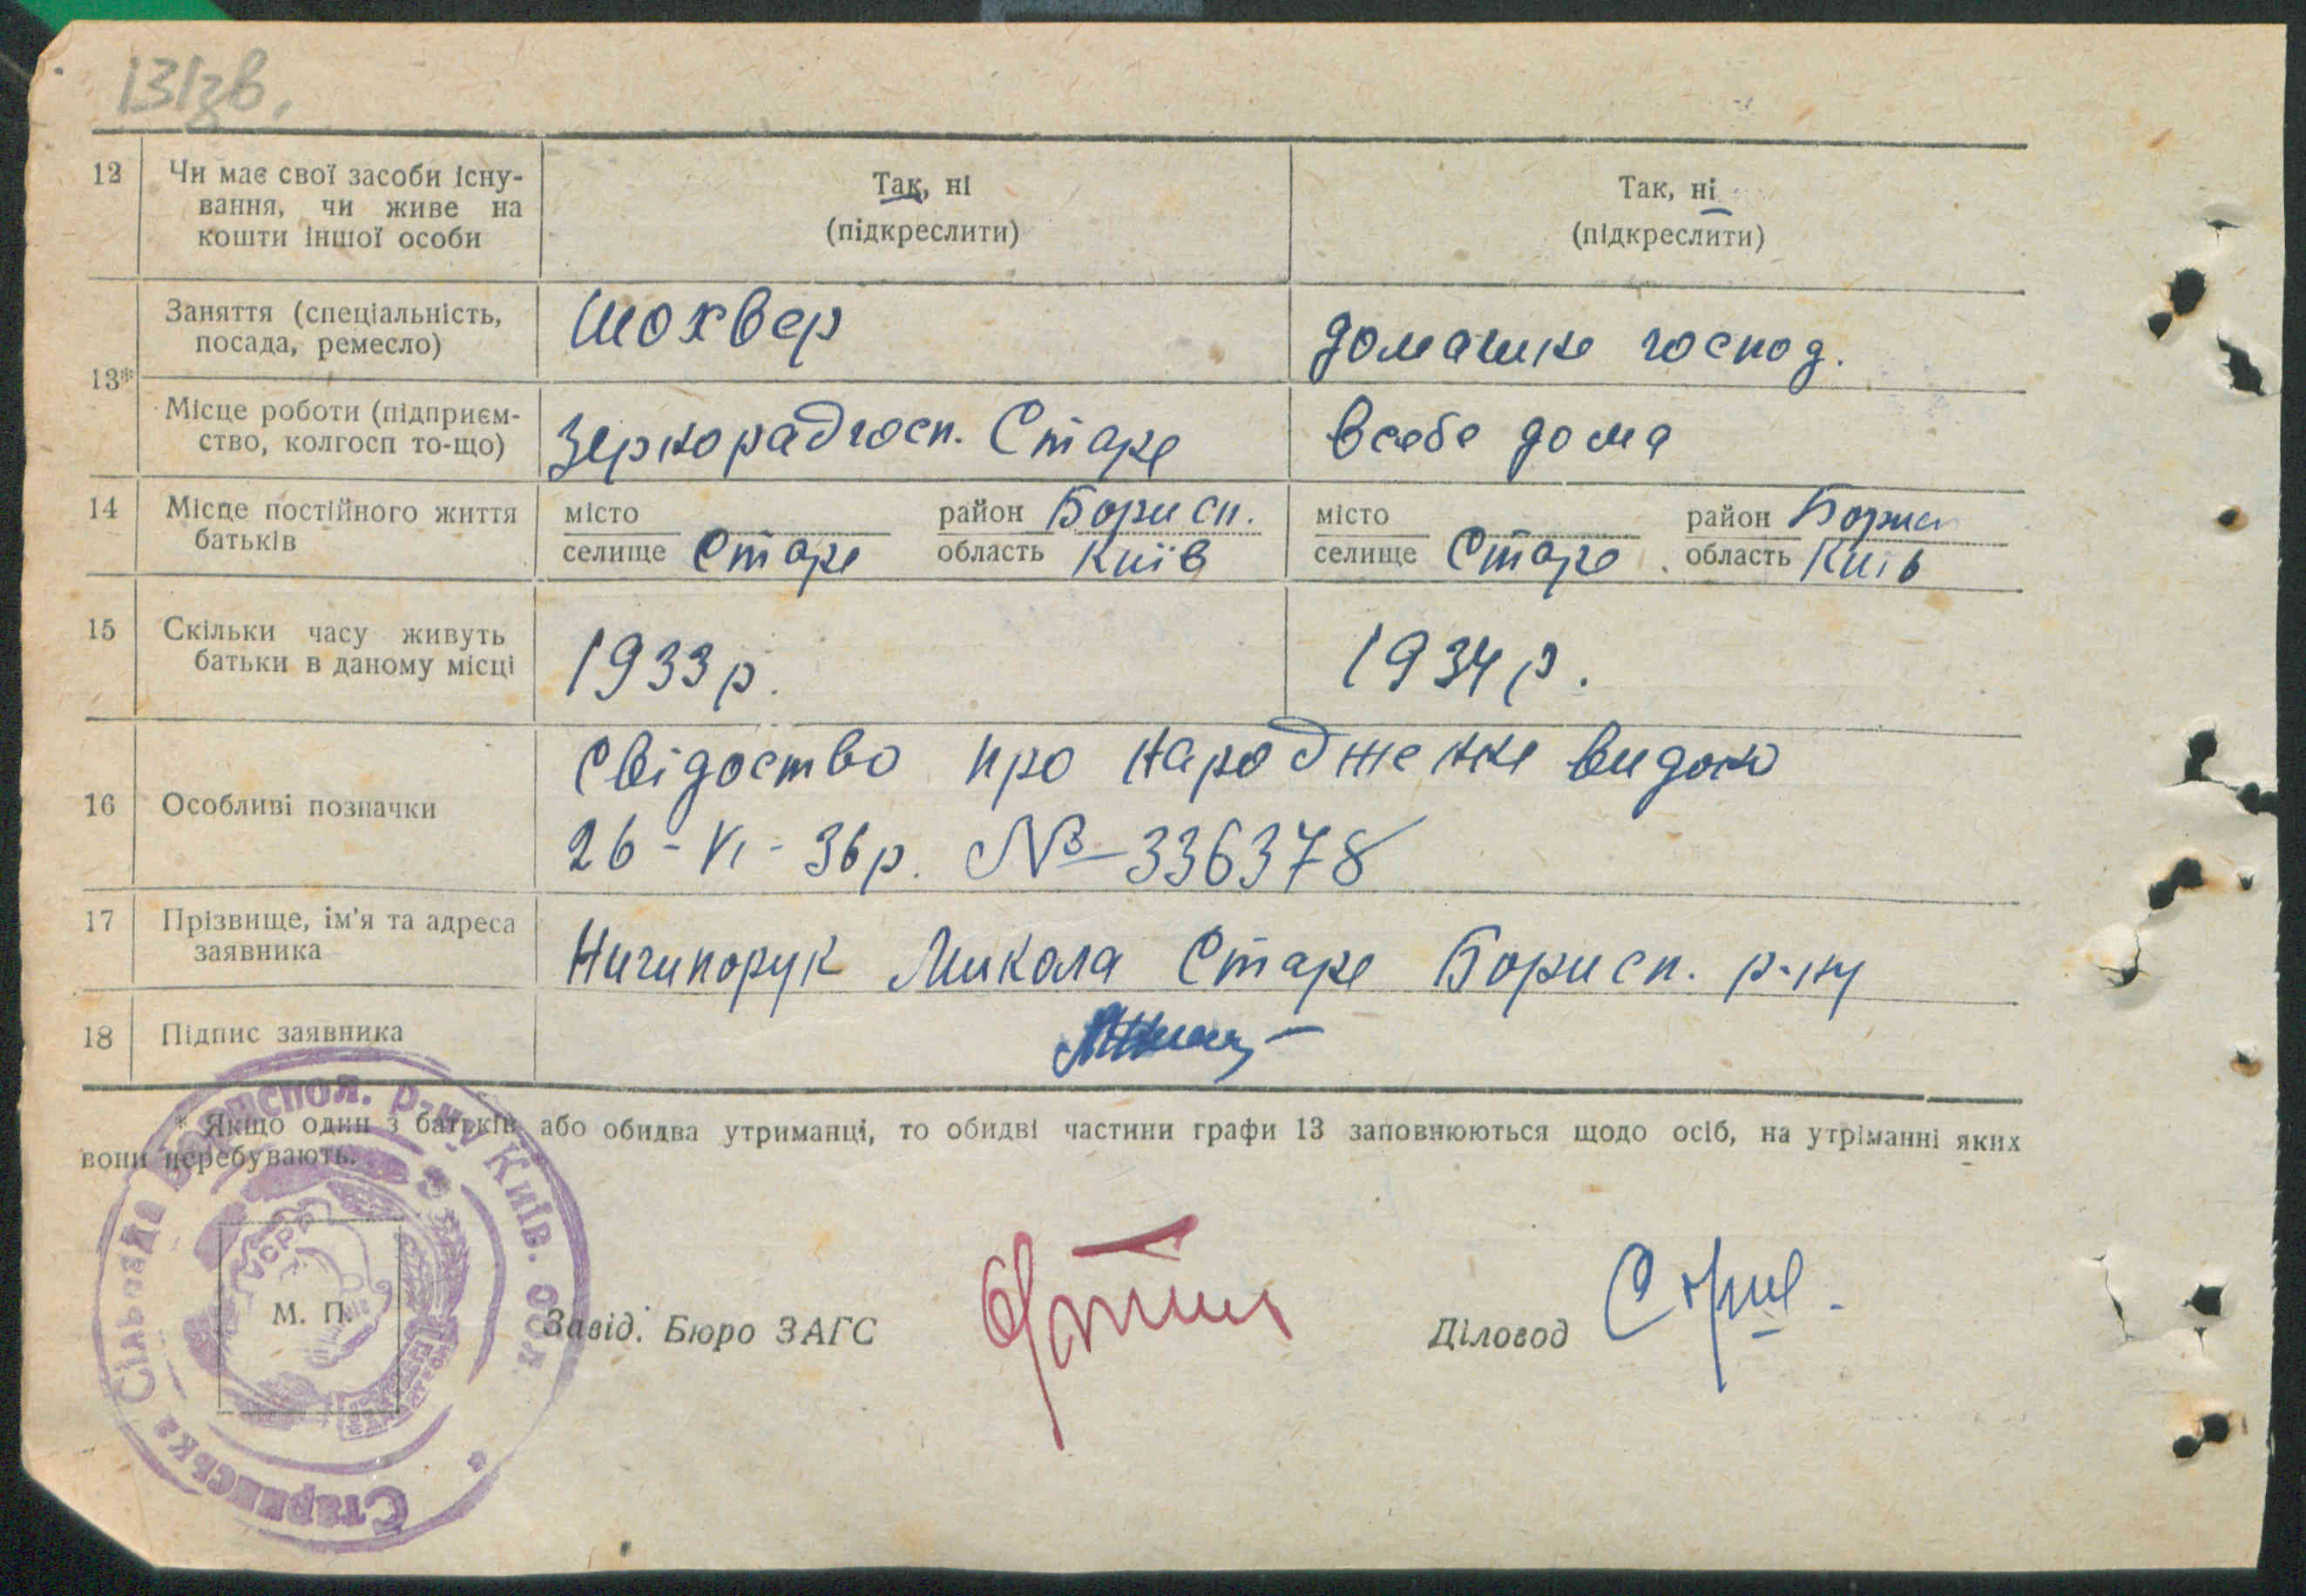 131зв.
12 Чи має свої засоби існу-
вання, чи живе на
кошти іншої особи
Так, ні
(підкреслити)
Так, ні
(підкреслити)
13*
Заняття (спеціальність,
посада, ремесло)
Шохвер
домашнє господ.
Місце роботи (підприєм-
ство, колгосп то-що)
Зернорадгосп. Старе
в себе дома
14 Місце постійного життя
батьків
місто
район Борисп.
селище Старе область Київ
місто
район Борисп
селище Старе область Київ
15 Скільки часу живуть
батьки в даному місці
1933р.
1934р.
16 Особливі позначки
Свідоство про народження видано
26-VI-36р. № 336378
17 Прізвище, ім'я та адреса
заявника
Ничипорук Микола Старе Борисп. р-ну
18 Підпис заявника
* Якщо один з батьків або обидва утриманці, то обидві частини графи 13 заповнюються щодо осіб, на утріманні яких
вони перебувають.
Старинська Сільрада Бориспол. р-ну Київ. обл.
УСРР
М. П.
Завід. Бюро ЗАГС
Діловод